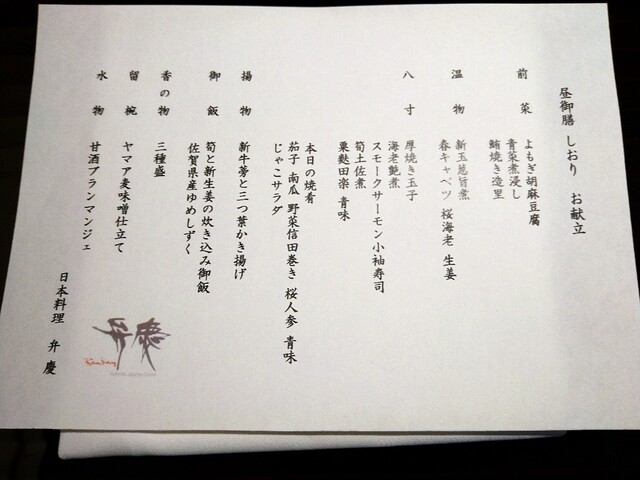 昼御膳 しおり お献立
前菜 よもぎ胡麻豆腐
青菜煮浸し
鮪焼き造里
温物 新玉葱旨煮
春キャベツ 桜海老 生姜
八寸 厚焼き玉子
海老艶煮
スモークサーモン小袖寿司
筍土佐煮
粟麩田楽 青味
本日の焼肴
茄子 南瓜 野菜信田巻き 桜人参 青味
じゃこサラダ
揚物 新牛蒡と三つ葉かき揚げ
御飯 筍と新生姜の炊き込み御飯
佐賀県産ゆめしずく
香の物 三種盛
留椀 ヤマア麦味噌仕立て
水物 甘酒ブランマンジェ
日本料理 弁慶
弁慶
Benkay